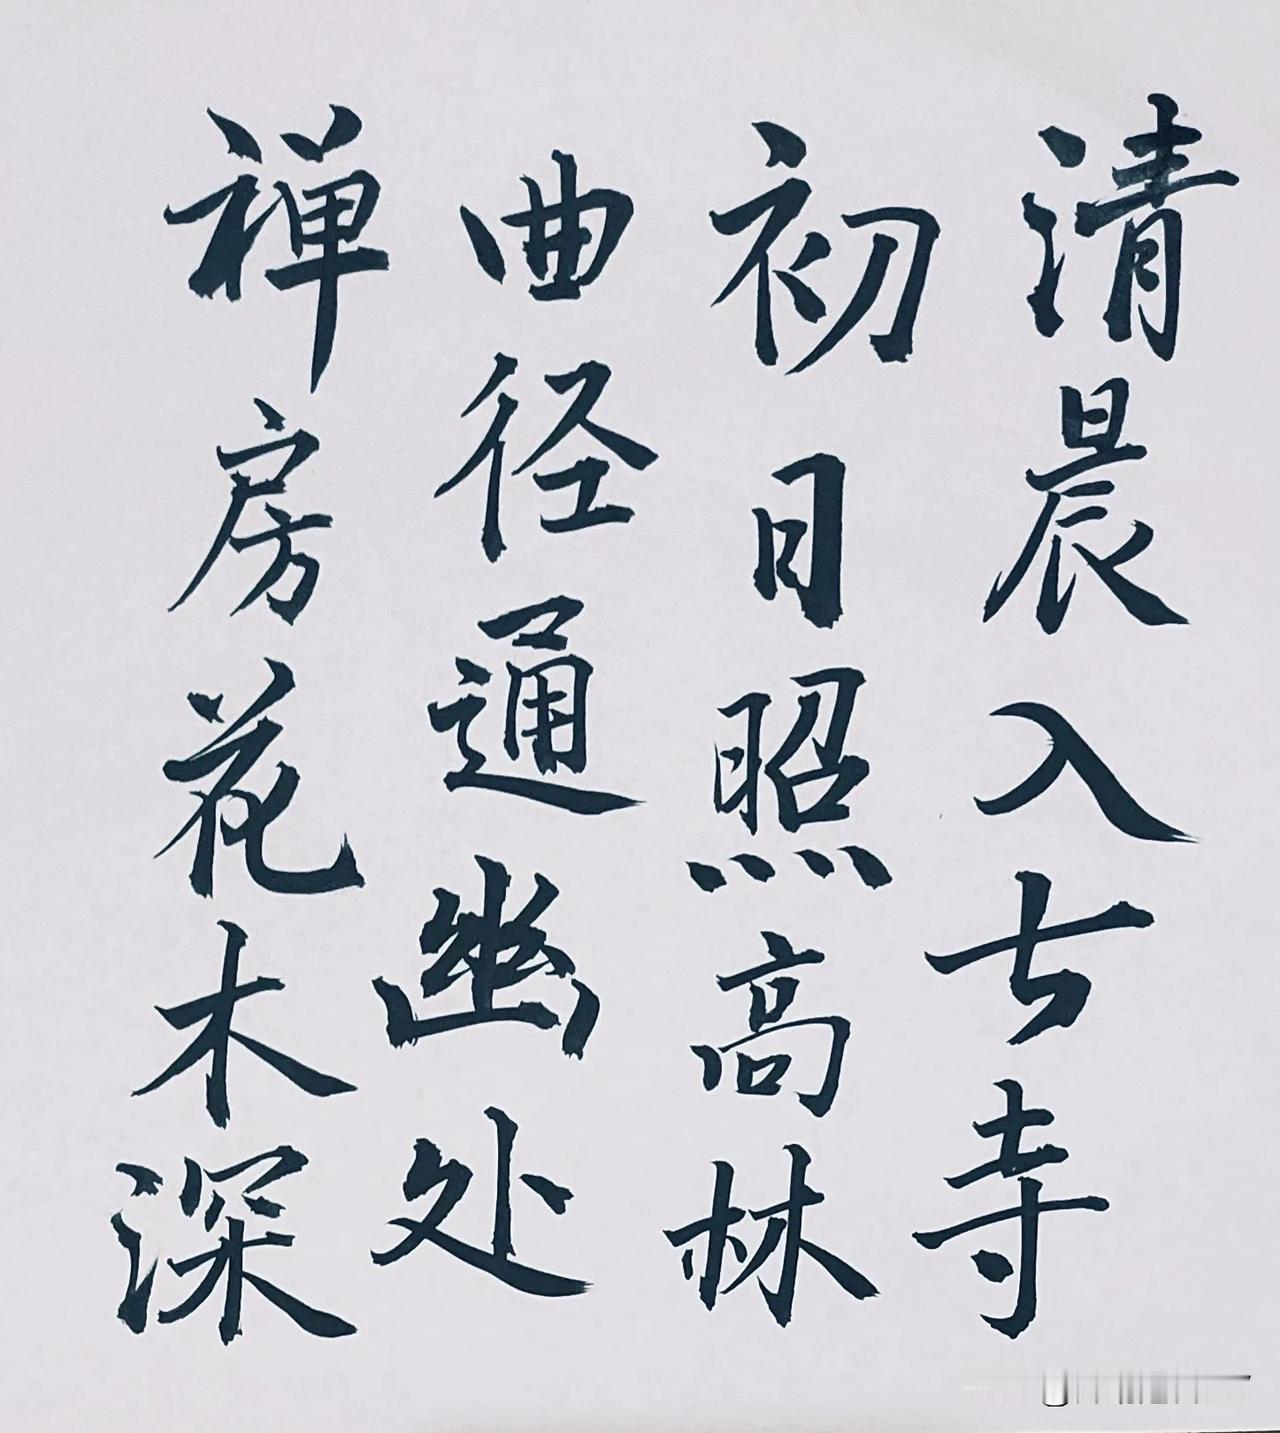 清晨入古寺
初日照高林
曲径通幽处
禅房花木深